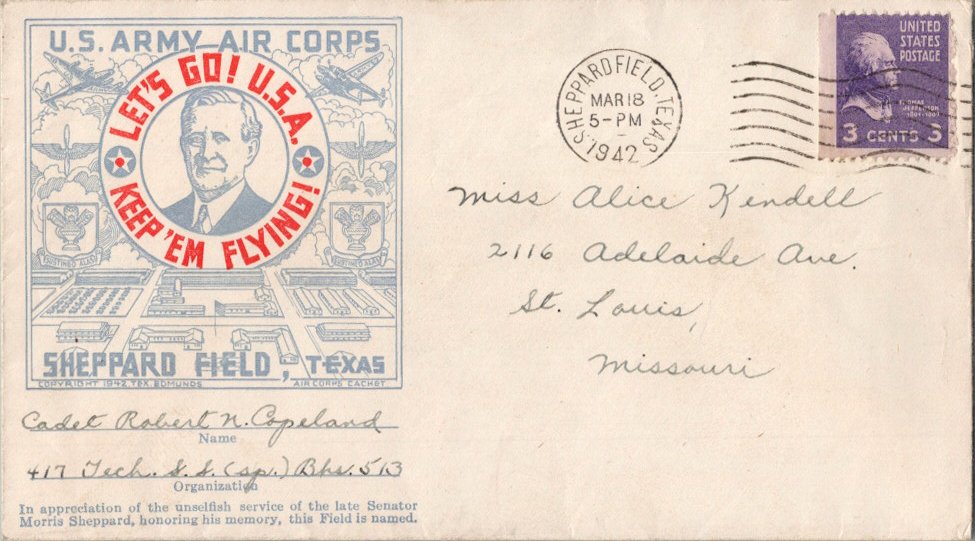 U.S. ARMY AIR CORPS
LET'S GO! U.S.A.
KEEP 'EM FLYING!
SUSTINEO ALAS
SUSTINEO ALAS
SHEPPARD FIELD, TEXAS
COPYRIGHT 1942, TEX. EDMUNDS
AIR CORPS CACHET
Cadet Robert N. Copeland
Name
417 Tech. S.S. (sp.) Bks. 513
Organization
In appreciation of the unselfish service of the late Senator
Morris Sheppard, honoring his memory, this Field is named.
SHEPPARD FIELD, TEXAS.
MAR 18
5-PM
1942
UNITED
STATES
POSTAGE
THOMAS
JEFFERSON
1801-1809
3 CENTS 3
Miss Alice Kendell
2116 Adelaide Ave.
St. Louis,
Missouri